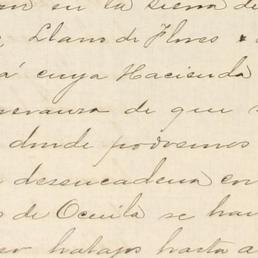 en la sierra de
Llano de Flores
á cuya Hacienda
de que
donde podremos
desencadena con
de Ocuila se han
trabajos hasta a